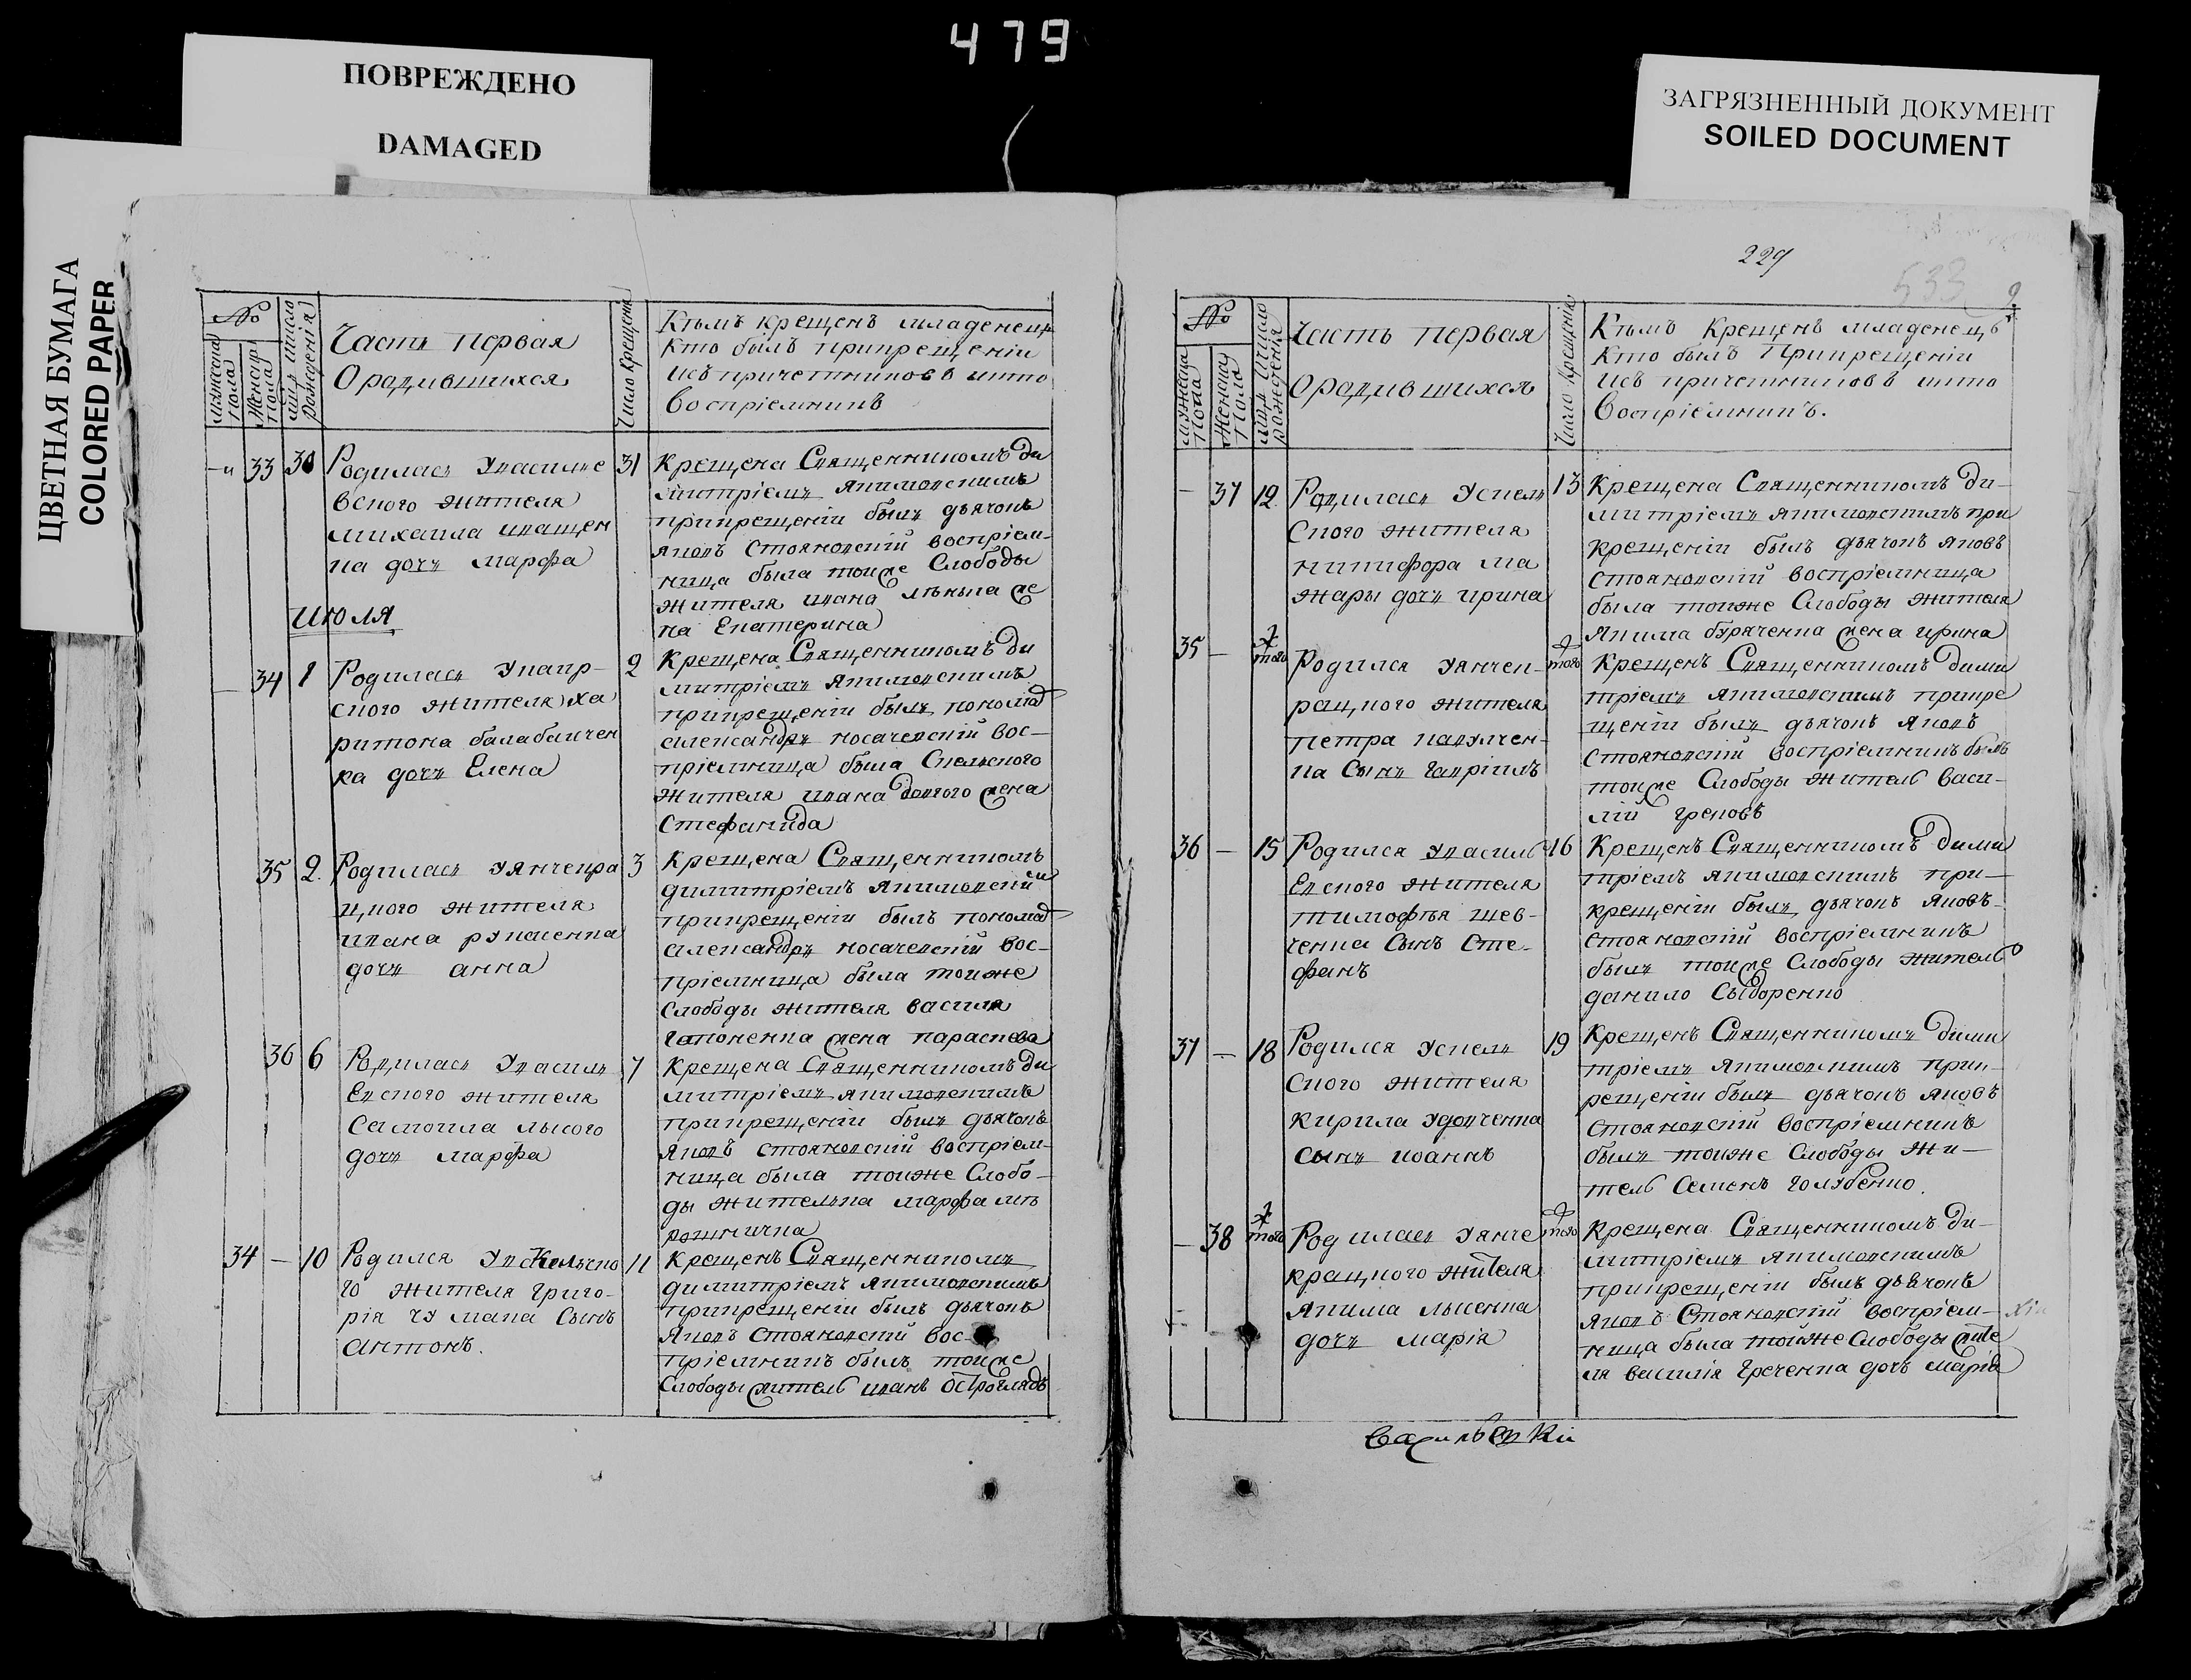 479
ПОВРЕЖДЕНО
DAMAGED
ЦВЕТНАЯ БУМАГА
COLORED PAPER
ЗАГРЯЗНЕННЫЙ ДОКУМЕНТ
SOILED DOCUMENT
№
мужеска пола
Женска пола
число рожденія
Часть первая
О радившихся
Число крещения
Кѣмъ крещенъ младенецъ
Кто былъ прикрещеніи
исъ причетниковъ икто
воспріемникъ
33 30
Родилась Увасилье
вского жителя
михаила иващен
ка дочь марфа
31
Крещена Священникомъ ди
митріемъ якимовскимъ
прикрещеніи былъ дьячокъ
яковъ стояновскій воспріем-
ница была тоиже Слободы
жителя ивана же
на Екатерина
июля
34 1
Родилась
ского жителя ха
ритона балабличен
ка дочь Елена
2
Крещена Священникомъ ди
митріемъ якимовскимъ
прикрещеніи былъ пономар
александръ носачевскій вос-
пріемница была Спельского
жителя ивана довгого жена
Стефанида
35 2.
Родилась Уянчекра
цкого жителя
ивана
дочь анна
3
Крещена Священникомъ
димитріемъ якимовскім
прикрещеніи былъ пономар
александръ носачевскій вос-
пріемница была тоиже
Слободы жителя василя
гапоненка жена параскева
36 6
Родилась Увасиль
Евского жителя
Самоила лысого
дочь марфа
7
Крещена Священникомъ ди
митріемъ якимовскимъ
прикрещеніи былъ дьячокъ
яковъ стояновскій воспріем-
ница была тоиже Слобо-
ды жителька марфа мѣ
рошничка
34 — 10
Родился
го жителя григо-
рія чумака Сынъ
антонъ.
11
Крещенъ Священникомъ
димитріемъ якимовскимъ
прикрещеніи былъ дьячокъ
яковъ стояновскій вос-
пріемникъ былъ тоиже
Слободы житель иванъ остроглядъ
229
533
9
№
мужеска пола
Женска пола
мца ичисло рожденія
Часть первая
Орадившихся
Число Крещенія
Кѣмъ Крещенъ младенецъ
Кто былъ Прикрещеніи
исъ причетниковъ икто
воспріемникъ.
— 37 12.
Родилась Успель
Ского жителя
никифора ма
жары дочь ирина
13
Крещена Священникомъ ди-
митріемъ якимовскимъ при
крещеніи былъ дьячокъ яковъ
стояновскій воспріемница
была тоиже Слободы жителя
якима бураченка жена ирина
35 — того
Родился Уянчек-
рацкого жителя
петра павличен-
ка Сынъ гавріилъ
того
Крещенъ Священникомъ дими
тріемъ якимовскимъ прикре
щеніи былъ дьячокъ яковъ
стояновскій воспріемникъ былъ
тоиже Слободы житель васи-
лій грековъ
36 — 15
Родился Увасиль
Евского жителя
тимофѣя шев-
ченка Сынъ Сте-
фанъ
16
Крещенъ Священникомъ дими
тріемъ якимовскимъ при-
крещеніи былъ дьячокъ яковъ-
стояновскій воспріемникъ
былъ тоиже Слободы житель
данило Сыдоренко
37 — 18
Родился Успель
Ского жителя
Кирила Удовченка
сынъ иоаннъ
19
Крещенъ Священникомъ дими
тріемъ якимовскимъ прик-
рещеніи былъ дьячокъ яковъ
стояновскій воспріемникъ
былъ тоиже Слободы жи-
тель Семенъ голубенко.
— 38 того
Родилась Уянче
крацкого жителя
якима лысенка
дочь марія
того
Крещена Священникомъ ди-
митріемъ якимовскимъ
прикрещеніи былъ дьячокъ
яковъ Стояновскій воспріем-
ница была тойже Слободы жите
ля василія греченка дочь марія
васильевки